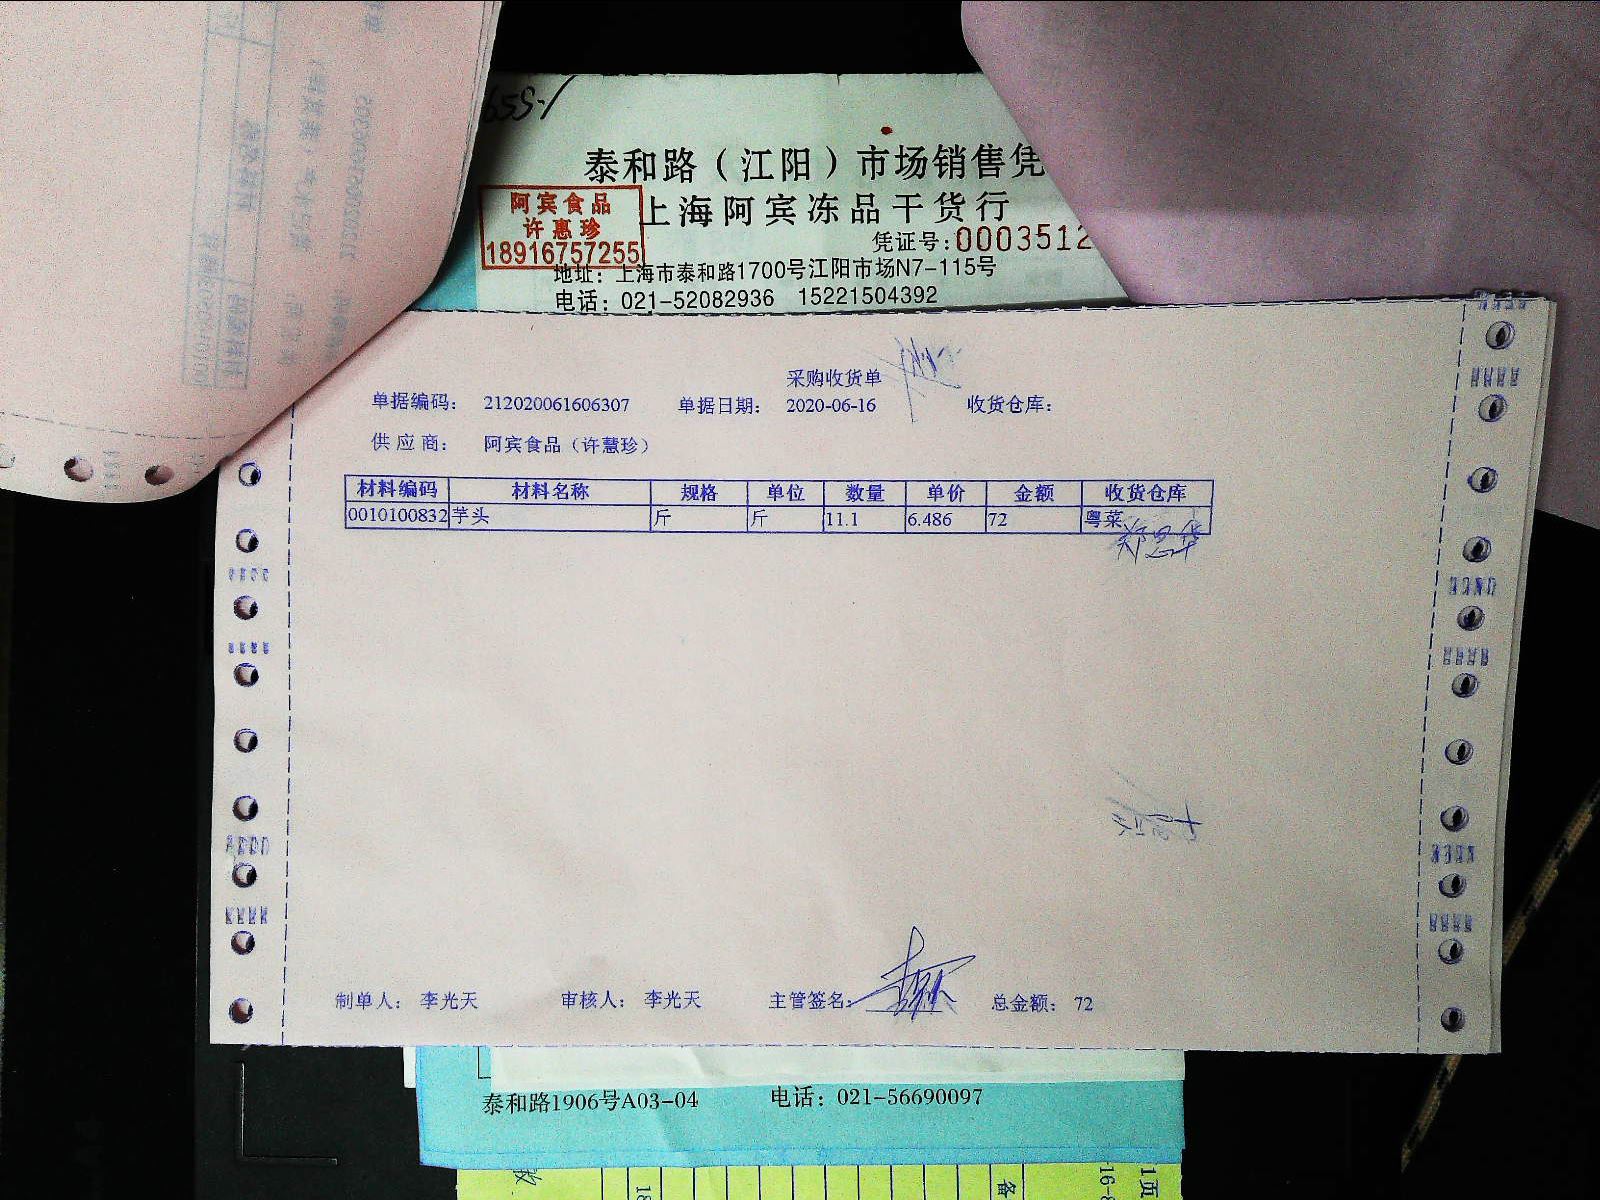 泰和路（江阳）市场销售凭
上海阿宾冻品干货行
阿宾食品
许惠珍
18916757255
凭证号:0003512
地址：上海市泰和路1700号江阳市场N7-115号
电话：021-52082936 15221504392
采购收货单
单据编码： 212020061606307 单据日期： 2020-06-16 收货仓库：
供应商： 阿宾食品（许慧珍）
材料编码 材料名称 规格 单位 数量 单价 金额 收货仓库
0010100832 芋头 斤 斤 11.1 6.486 72 粤菜
制单人： 李光天 审核人： 李光天 主管签名： 总金额： 72
泰和路1906号A03-04 电话：021-56690097